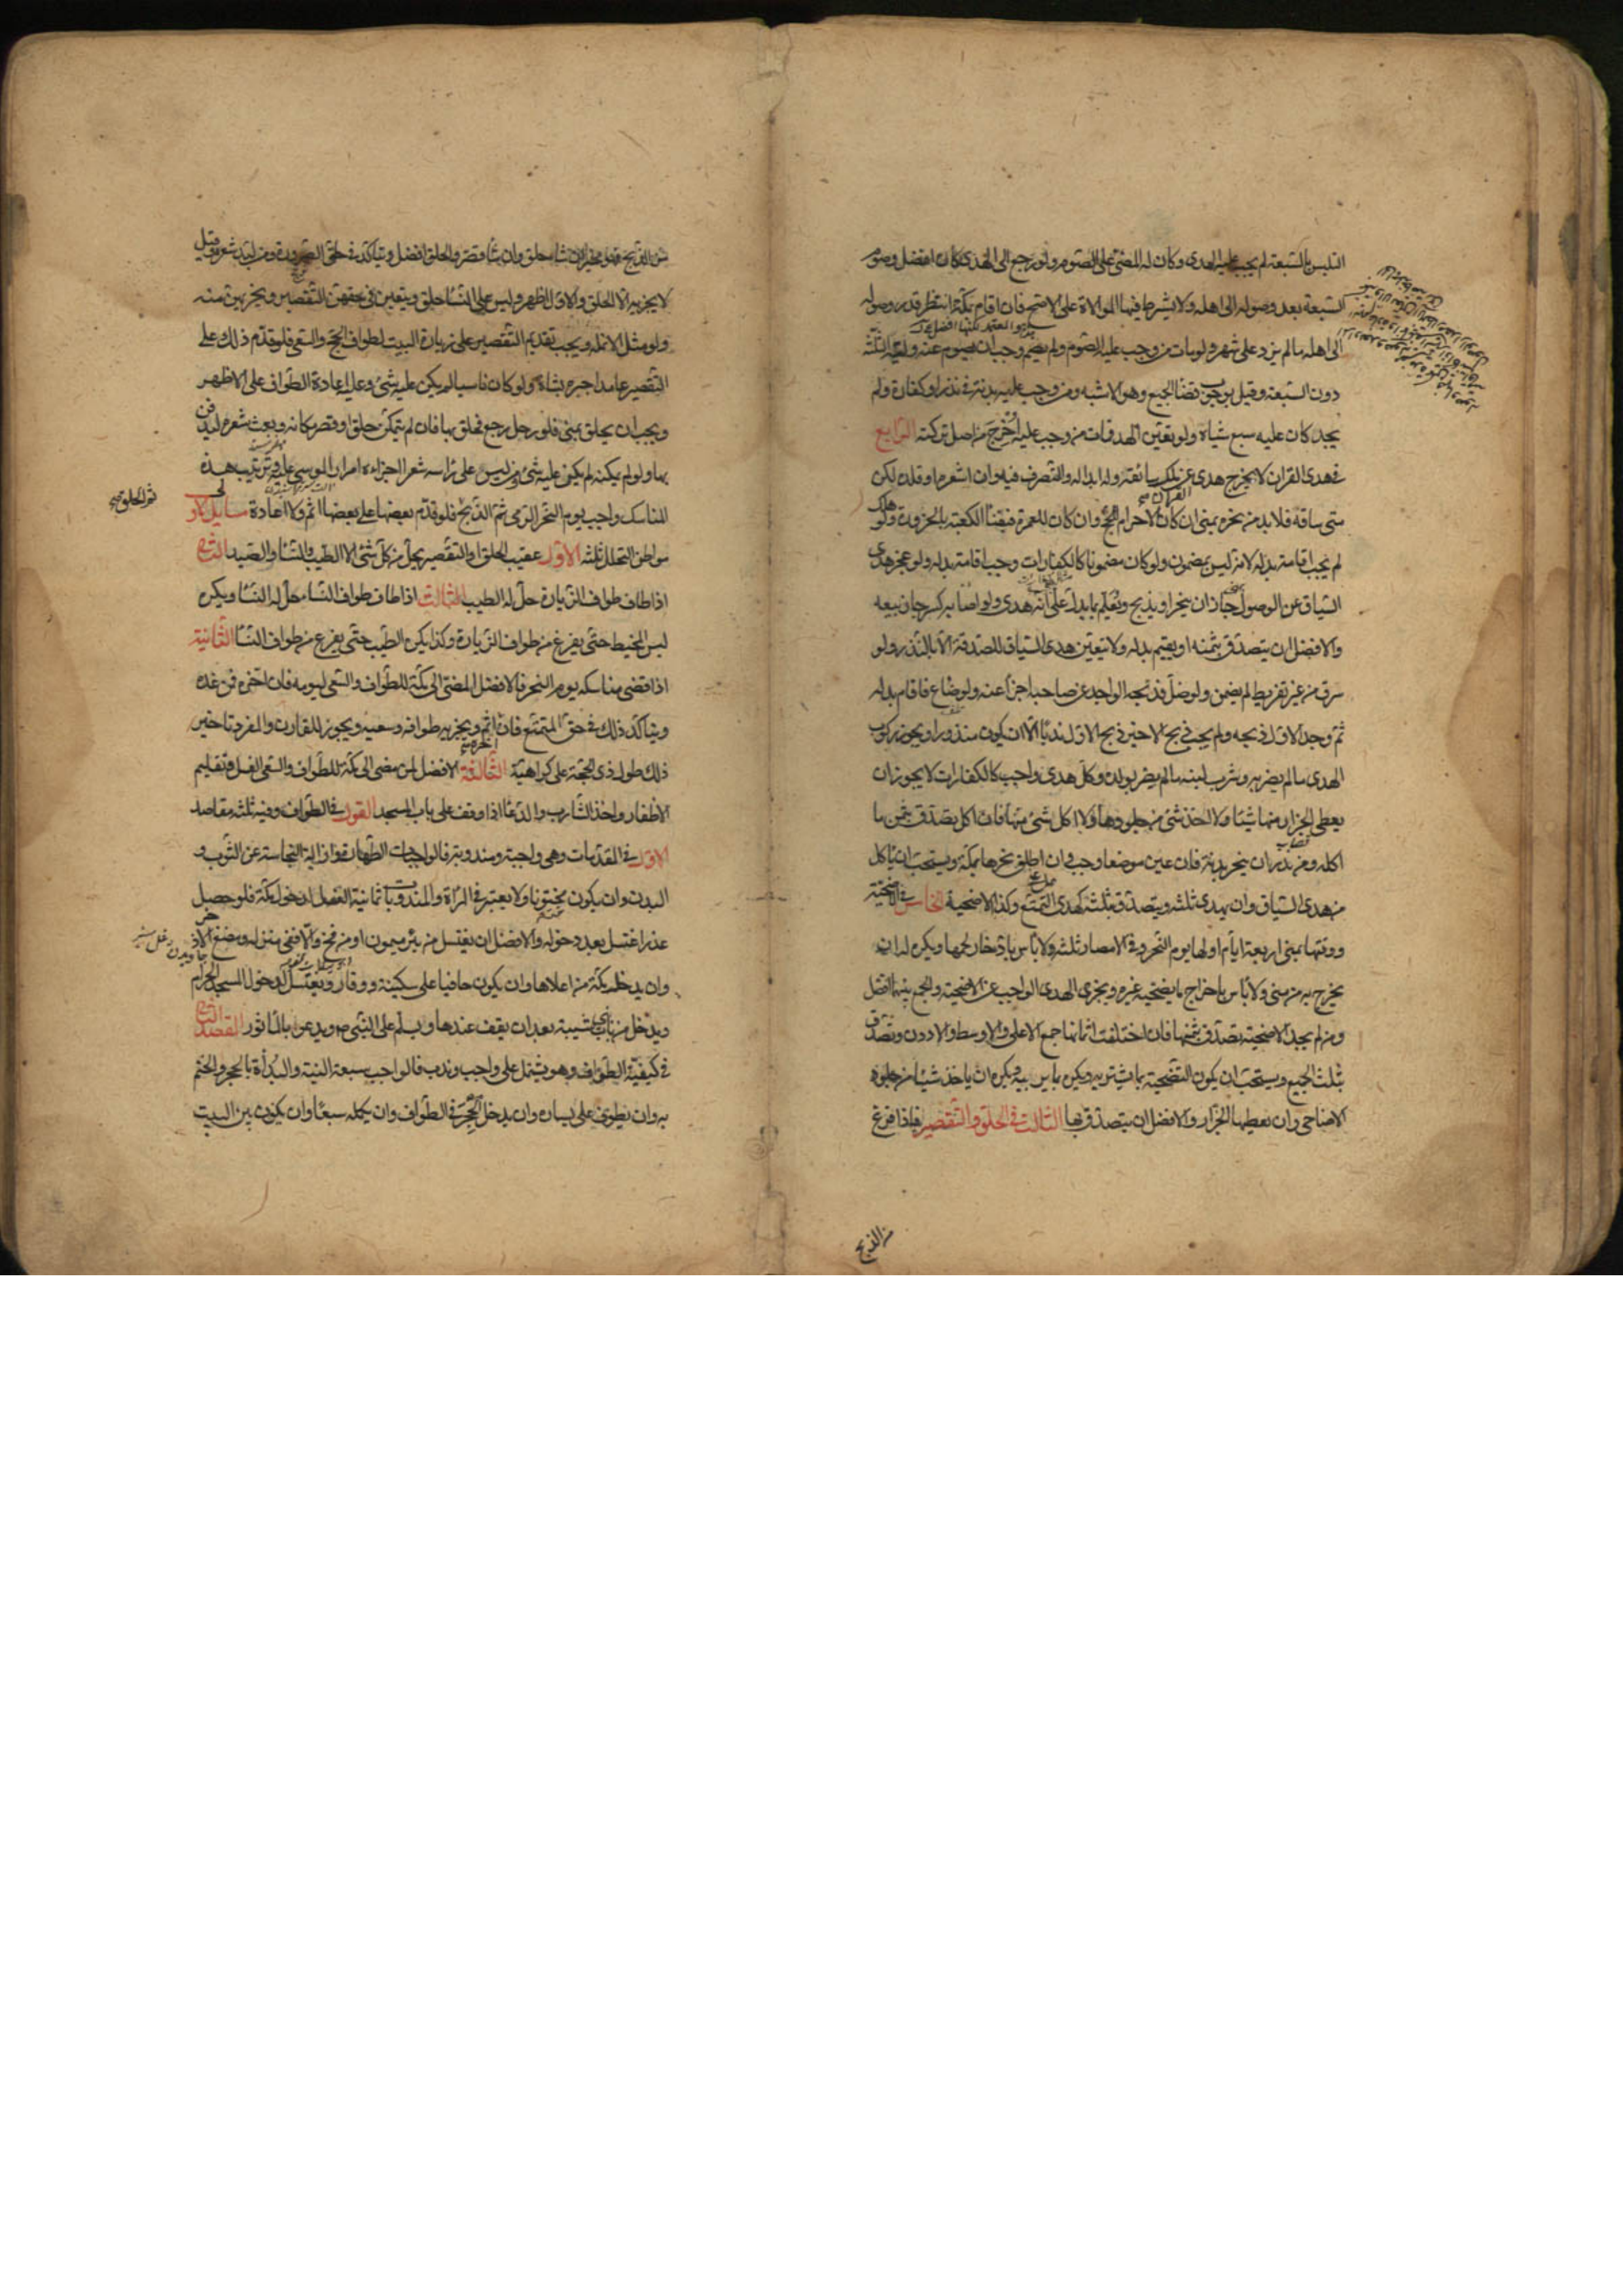 التلبس بالسبعة لم يجب عليه الهدى وكان له المضى على الصوم ولو رجع الى الهدى كان افضل وصوم
السبعة بعد وصوله الى اهله ولا يشترط فيها الموالاة على الاصح فان اقام بمكة انتظر قدر وصوله
الى اهله ما لم يزد على شهر ولو مات من وجب عليه الصوم ولم يصم وجب ان يصوم عنه وليه الثلثة
دون السبعة وقيل بوجوب قضا الجميع وهو الاشبه ومن وجب عليه بدنة فى نذر او كفارة ولم
يجد كان عليه سبع شياه ولو تعين الهدى فمات من وجب عليه اخرج من اصل تركته الرابع
فى هدى القران لا يخرج هدى عن ملك سائقه وله ابداله والتصرف فيه وان اشعره او قلده لكن
متى ساقه فلا بد من نحره بمنى ان كان الاحرام للحج وان كان للعمرة فبفناء الكعبة بالحزورة ولو هلك
لم يجب اقامة بدله لانه ليس بمضمون ولو كان مضمونا كالكفارات وجب اقامة بدله ولو عجز هدى
السياق عن الوصول جاز ان ينحر او يذبح ويعلم بما يدل على انه هدى ولو اصابه كسر جاز بيعه
والافضل ان يتصدق بثمنه او يقيم بدله ولا يتعين هدى السياق للصدقة الا بالنذر ولو
سرق من غير تفريط لم يضمن ولو ضل فذبحه الواجد عن صاحبه اجزأ عنه ولو ضاع فاقام بدله
ثم وجد الاول ذبحه ولم يجب ذبح الاخير ذبح الاول ندبا الا ان يكون منذورا ويجوز ركوب
الهدى ما لم يضر به وشرب لبنه ما لم يضر بولده وكل هدى واجب كالكفارات لا يجوز ان
يعطى الجزار منها شيئا ولا اخذ شئ من جلودها ولا اكل شئ منها فان اكل تصدق بثمن ما
اكله ومن نذر ان ينحر بدنة فان عين موضعا وجب وان اطلق نحرها بمكة ويستحب ان ياكل
من هدى السياق وان يهدى ثلثه ويتصدق بثلثه كهدى التمتع وكذا الاضحية الخامس فى الاضحية
ووقتها بمنى اربعة ايام اولها يوم النحر وفى الامصار ثلثة ولا باس بادخار لحمها ويكره له ان
يخرج به من منى ولا باس باخراج ما يضحيه غيره ويجزى الهدى الواجب عن الاضحية والجمع بينهما افضل
ومن لم يجد الاضحية تصدق بثمنها فان اختلفت اثمانها جمع الاعلى والاوسط والادون وتصدق
بثلث الجميع ويستحب ان يكون التضحية بما يشتريه ويكره بما يربيه ويكره ان ياخذ شيئا من جلود
الاضاحى وان يعطيها الجزار والافضل ان يتصدق بها الثالث فى الحلق والتقصير فاذا فرغ
من الذبح
من الذبح فهو مخير ان شاء حلق وان شا قصر والحلق افضل ويتاكد فى حق الصرورة ومن لبد شعره وقيل
لا يجزيه الا الحلق والاول اظهر وليس على النسا حلق ويتعين فى حقهن التقصير ويجزيهن منه
ولو مثل الانملة ويجب تقديم التقصير على زيارة البيت لطواف الحج والسعى فلو قدم ذلك على
التقصير عامدا جبره بشاة ولو كان ناسيا لم يكن عليه شئ وعليه اعادة الطواف على الاظهر
ويجب ان يحلق بمنى فلو رحل رجع فحلق بها فان لم يتمكن حلق او قصر مكانه وبعث شعره ليدفن
بها ولو لم يمكنه لم يكن عليه شئ ومن ليس على راسه شعر اجزاءه امرار الموسى عليه وترتيب هذه
المناسك واجب يوم النحر الرمى ثم الذبح فلو قدم بعضها على بعض اثم ولا اعادة مسايل الاولى
ثم الحلق صح
مواطن التحلل ثلثة الاول عقيب الحلق او التقصير يحل من كل شئ الا الطيب والنسا والصيد الثانى
اذا طاف طواف الزيارة حل له الطيب الثالث اذا طاف طواف النساء حل له النسا ويكره
لبس المخيط حتى يفرغ من طواف الزيارة وكذا يكره الطيب حتى يفرغ من طواف النسا الثانية
اذا قضى مناسكه يوم النحر فالافضل المضى الى مكة للطواف والسعى ليومه فان اخره فمن غده
ويتاكد ذلك فى حق المتمتع فان اخره اثم ويجزيه طوافه وسعيه ويجوز للقارن والمفرد تاخير
ذلك طول ذى الحجة على كراهية الثالثة الافضل لمن مضى الى مكة للطواف والسعى الغسل وتقليم
الاظفار واخذ الشارب والدعا اذا وقف على باب المسجد القول فى الطواف وفيه ثلثة مقاصد
الاول فى المقدمات وهى واجبة ومندوبة فالواجبات الطهارة وازالة النجاسة عن الثوب و
البدن وان يكون مختونا ولا يعتبر فى المرأة والمندوبات ثمانية الغسل لدخول مكة فلو حصل
عذر اغتسل بعد دخوله والافضل ان يغتسل من بئر ميمون او من فخ والا ففى منزله ومضغ الاذخر
وان يدخل مكة من اعلاها وان يكون حافيا على سكينة ووقار ويغتسل لدخول المسجد الحرام
ويدخل من باب بنى شيبة بعد ان يقف عندها ويسلم على النبى ص ويدعو بالماثور المقصد الثانى
فى كيفية الطواف وهو يشتمل على واجب وندب فالواجب سبعة النية والبدأة بالحجر والختم
به وان يطوف على يساره وان يدخل الحجر فى الطواف وان يكمله سبعا وان يكون بين البيت